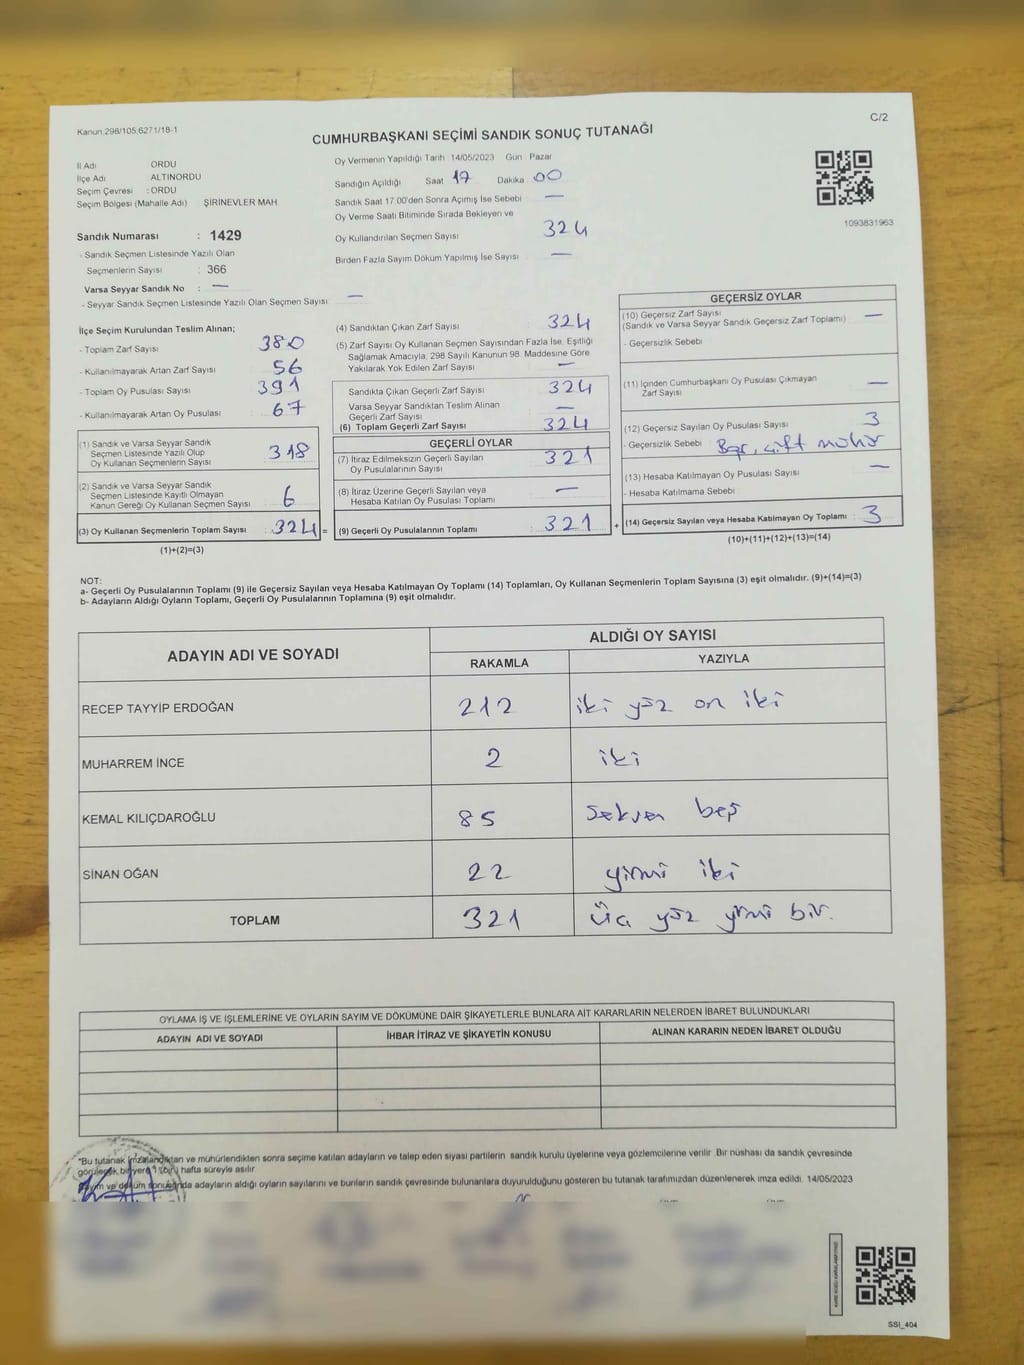 Kanun.298/105;6271/18-1
C/2
CUMHURBAŞKANI SEÇİMİ SANDIK SONUÇ TUTANAĞI
İl Adı ORDU
İlçe Adı ALTINORDU
Seçim Çevresi :ORDU
Seçim Bölgesi (Mahalle Adı) ŞİRİNEVLER MAH.
Sandık Numarası : 1429
- Sandık Seçmen Listesinde Yazılı Olan
Seçmenlerin Sayısı : 366
Varsa Seyyar Sandık No : —
- Seyyar Sandık Seçmen Listesinde Yazılı Olan Seçmen Sayısı : —
Oy Vermenin Yapıldığı Tarih 14/05/2023 Gün Pazar
Sandığın Açıldığı Saat 17 Dakika 00
Sandık Saat 17.00'den Sonra Açılmış İse Sebebi —
Oy Verme Saati Bitiminde Sırada Bekleyen ve
Oy Kullandırılan Seçmen Sayısı 324
Birden Fazla Sayım Döküm Yapılmış İse Sayısı —
1093831963
İlçe Seçim Kurulundan Teslim Alınan;
- Toplam Zarf Sayısı : 380
- Kullanılmayarak Artan Zarf Sayısı : 56
- Toplam Oy Pusulası Sayısı : 391
- Kullanılmayarak Artan Oy Pusulası : 67
(1) Sandık ve Varsa Seyyar Sandık
Seçmen Listesinde Yazılı Olup
Oy Kullanan Seçmenlerin Sayısı : 318
(2) Sandık ve Varsa Seyyar Sandık
Seçmen Listesinde Kayıtlı Olmayan
Kanun Gereği Oy Kullanan Seçmen Sayısı : 6
(3) Oy Kullanan Seçmenlerin Toplam Sayısı : 324 =
(1)+(2)=(3)
(4) Sandıktan Çıkan Zarf Sayısı : 324
(5) Zarf Sayısı Oy Kullanan Seçmen Sayısından Fazla İse, Eşitliği
Sağlamak Amacıyla, 298 Sayılı Kanunun 98. Maddesine Göre
Yakılarak Yok Edilen Zarf Sayısı : —
Sandıkta Çıkan Geçerli Zarf Sayısı : 324
Varsa Seyyar Sandıktan Teslim Alınan
Geçerli Zarf Sayısı : —
(6) Toplam Geçerli Zarf Sayısı : 324
GEÇERLİ OYLAR
(7) İtiraz Edilmeksizin Geçerli Sayılan
Oy Pusulalarının Sayısı : 321
(8) İtiraz Üzerine Geçerli Sayılan veya
Hesaba Katılan Oy Pusulası Toplamı : —
(9) Geçerli Oy Pusulalarının Toplamı : 321 +
GEÇERSİZ OYLAR
(10) Geçersiz Zarf Sayısı
(Sandık ve Varsa Seyyar Sandık Geçersiz Zarf Toplamı) : —
- Geçersizlik Sebebi
(11) İçinden Cumhurbaşkanı Oy Pusulası Çıkmayan
Zarf Sayısı : —
(12) Geçersiz Sayılan Oy Pusulası Sayısı : 3
- Geçersizlik Sebebi çift mühür
(13) Hesaba Katılmayan Oy Pusulası Sayısı : —
- Hesaba Katılmama Sebebi
(14) Geçersiz Sayılan veya Hesaba Katılmayan Oy Toplamı : 3
(10)+(11)+(12)+(13)=(14)
NOT:
a- Geçerli Oy Pusulalarının Toplamı (9) ile Geçersiz Sayılan veya Hesaba Katılmayan Oy Toplamı (14) Toplamları, Oy Kullanan Seçmenlerin Toplam Sayısına (3) eşit olmalıdır. (9)+(14)=(3)
b- Adayların Aldığı Oyların Toplamı, Geçerli Oy Pusulalarının Toplamına (9) eşit olmalıdır.
ADAYIN ADI VE SOYADI ALDIĞI OY SAYISI
RAKAMLA YAZIYLA
RECEP TAYYİP ERDOĞAN 212 iki yüz on iki
MUHARREM İNCE 2 iki
KEMAL KILIÇDAROĞLU 85 seksen beş
SİNAN OĞAN 22 yirmi iki
TOPLAM 321 üç yüz yirmi bir.
OYLAMA İŞ VE İŞLEMLERİNE VE OYLARIN SAYIM VE DÖKÜMÜNE DAİR ŞİKAYETLERLE BUNLARA AİT KARARLARIN NELERDEN İBARET BULUNDUKLARI
ADAYIN ADI VE SOYADI İHBAR İTİRAZ VE ŞİKAYETİN KONUSU ALINAN KARARIN NEDEN İBARET OLDUĞU
*Bu tutanak imzalandıktan ve mühürlendikten sonra seçime katılan adayların ve talep eden siyasi partilerin sandık kurulu üyelerine veya gözlemcilerine verilir. Bir nüshası da sandık çevresinde
görülecek bir yere 1 (bir) hafta süreyle asılır.
Sayım ve döküm sonucunda adayların aldığı oyların sayılarını ve bunların sandık çevresinde bulunanlara duyurulduğunu gösteren bu tutanak tarafımızdan düzenlenerek imza edildi. 14/05/2023
SSI_404